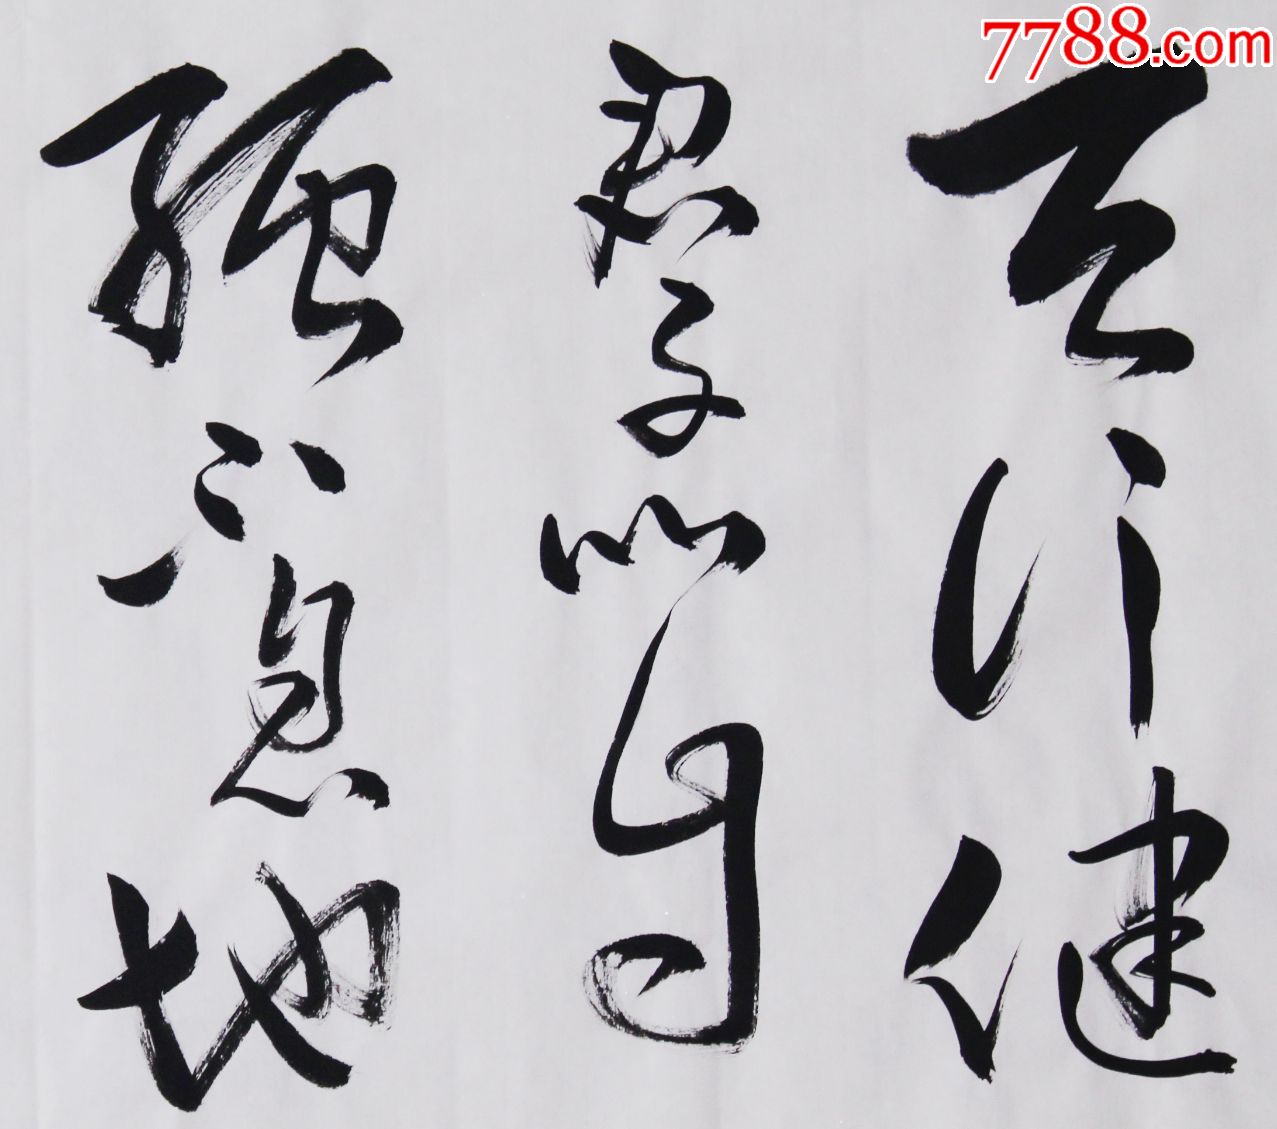 7788.com
天行健
君子以自
强不息地